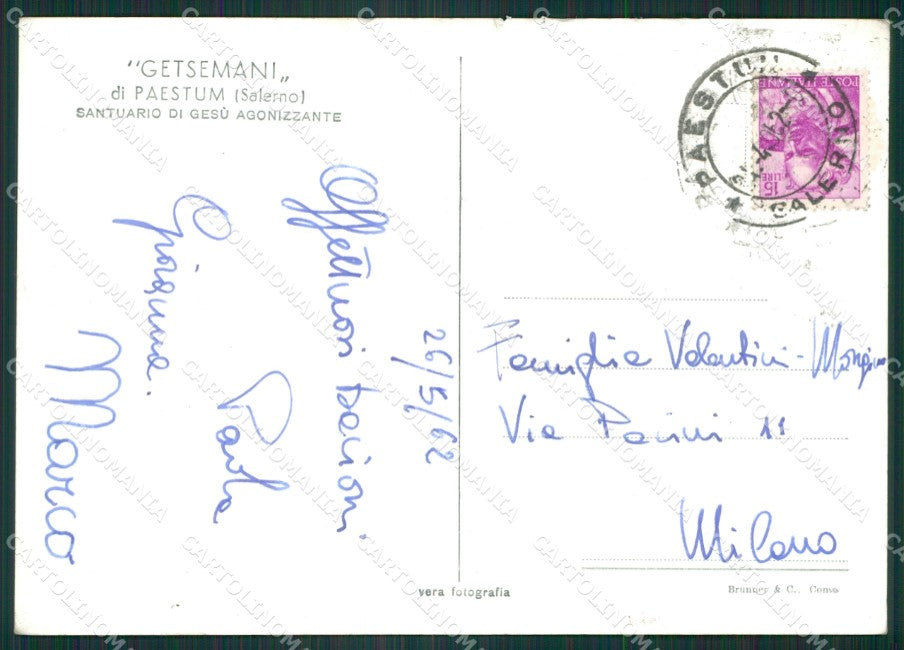 "GETSEMANI„
di PAESTUM (Salerno)
SANTUARIO DI GESÙ AGONIZZANTE
26/5/62
Affettuosi bacioni
Paola
Gianna.
Marco
vera fotografia
PAESTUM
SALERNO
POSTE ITALIANE
15 LIRE
Famiglia Valentini-
Via Pacini 11
Milano
Brunner & C., Como
CARTOLINOMANIA